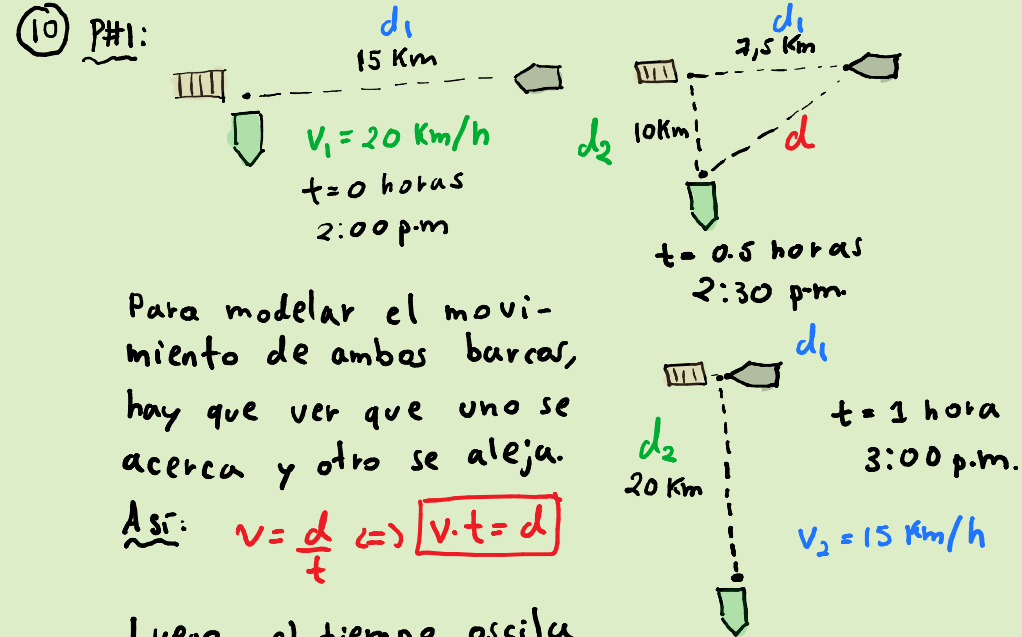 10 P#1:
d₁
15 Km
V₁ = 20 Km/h
t = 0 horas
2:00 p.m
d₁
7,5 Km
d₂ 10Km d
t = 0.5 horas
2:30 p.m.
Para modelar el movi-
miento de ambos barcos,
hay que ver que uno se
acerca y otro se aleja.
Así: v = d/t <=> v.t = d
d₁
t = 1 hora
3:00 p.m.
d₂
20 Km
V₂ = 15 Km/h
Luego el tiempo oscila